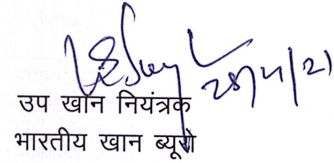 28/4/21
उप खान नियंत्रक
भारतीय खान ब्यूरो